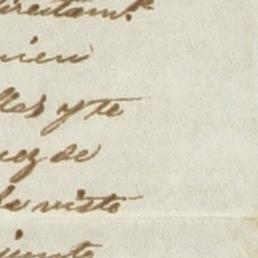 directamte
uien
llas y te
uez de
ha visto
iente